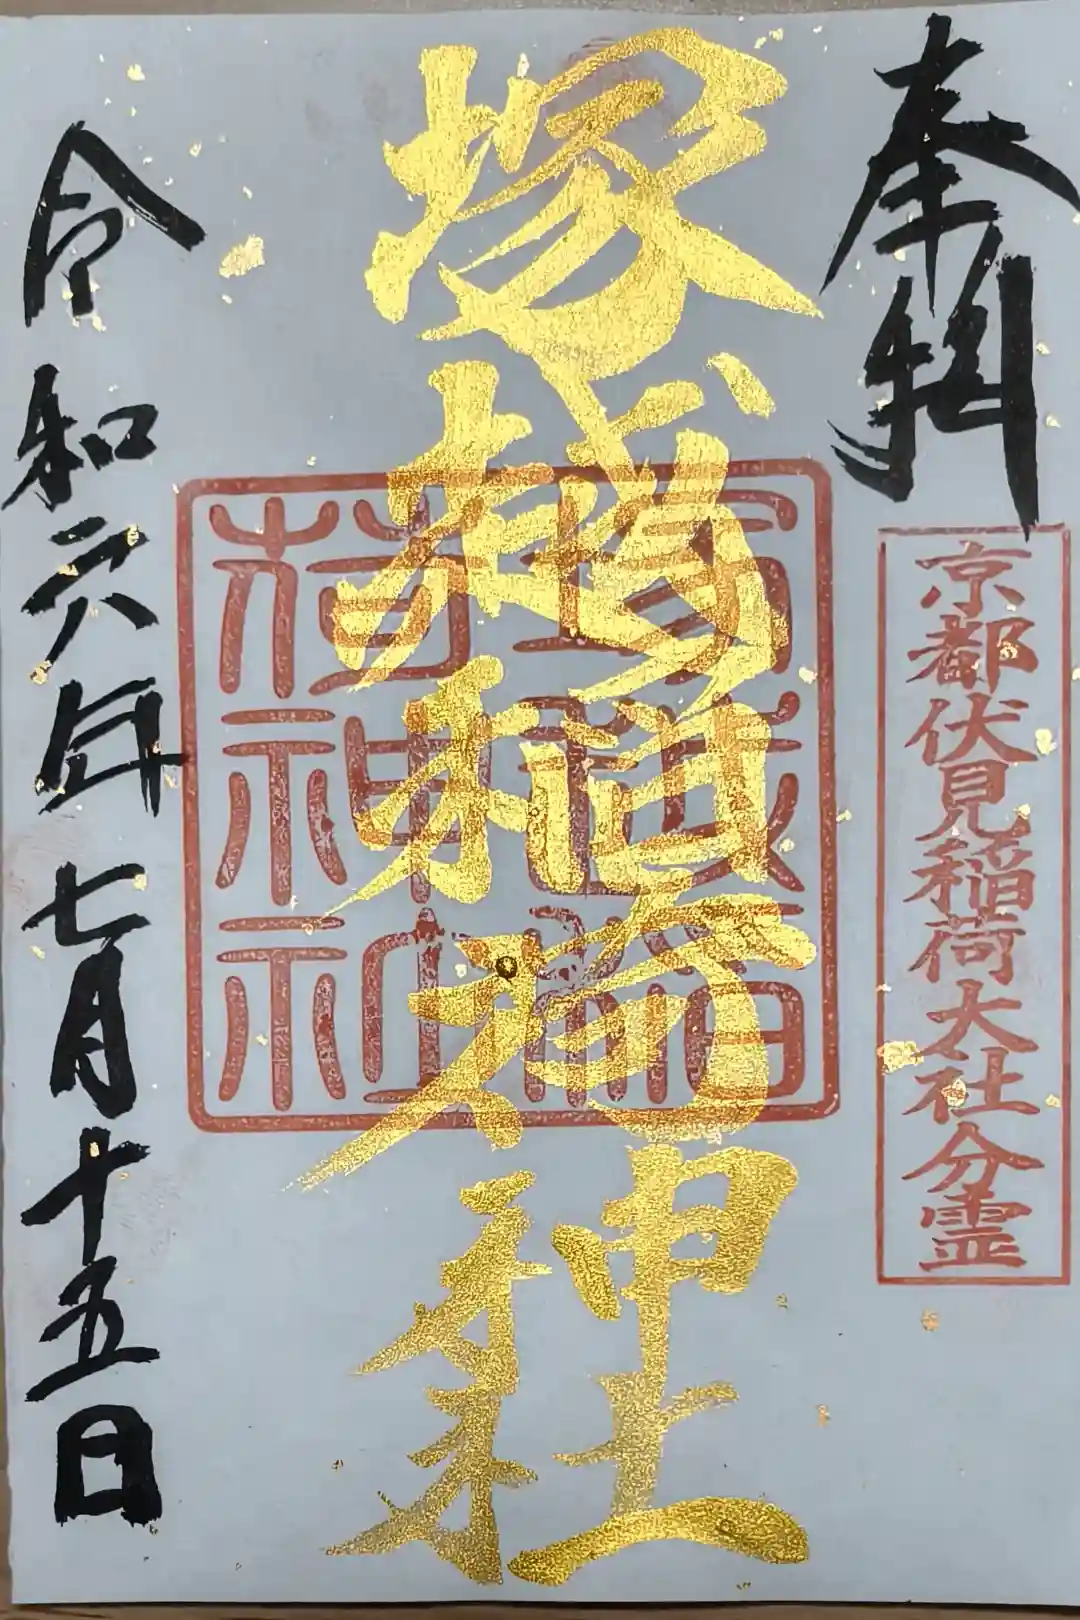 奉拝
京都伏見稲荷大社分霊
塚越稲荷神社
令和六年七月十五日